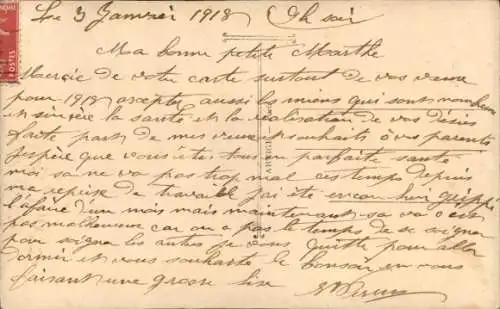 Le 3 Janvier 1918 9h soir
Ma bonne petite Marthe
Mercie de votre carte surtout de vos vœux
pour 1918 acceptez aussi les miens qui sont nombreux
et sincère la santé et la réalisation de vos désirs
faite part de mes vœux et souhaits à vos parents
J'espère que vous ètes tous en parfaite santé
moi sa ne va pas trop mal ces temps depuis
ma reprise de travaille j'ai été encore bien grippé
l'afaire d'un mois mais maintenant sa va c'est
pas malheureux car on a pas le temps de se soigner
pour soigner les autres je vous quitte pour aller
dormir et vous souhaite le bonsoir en vous
faisant une grosse bise
POSTES